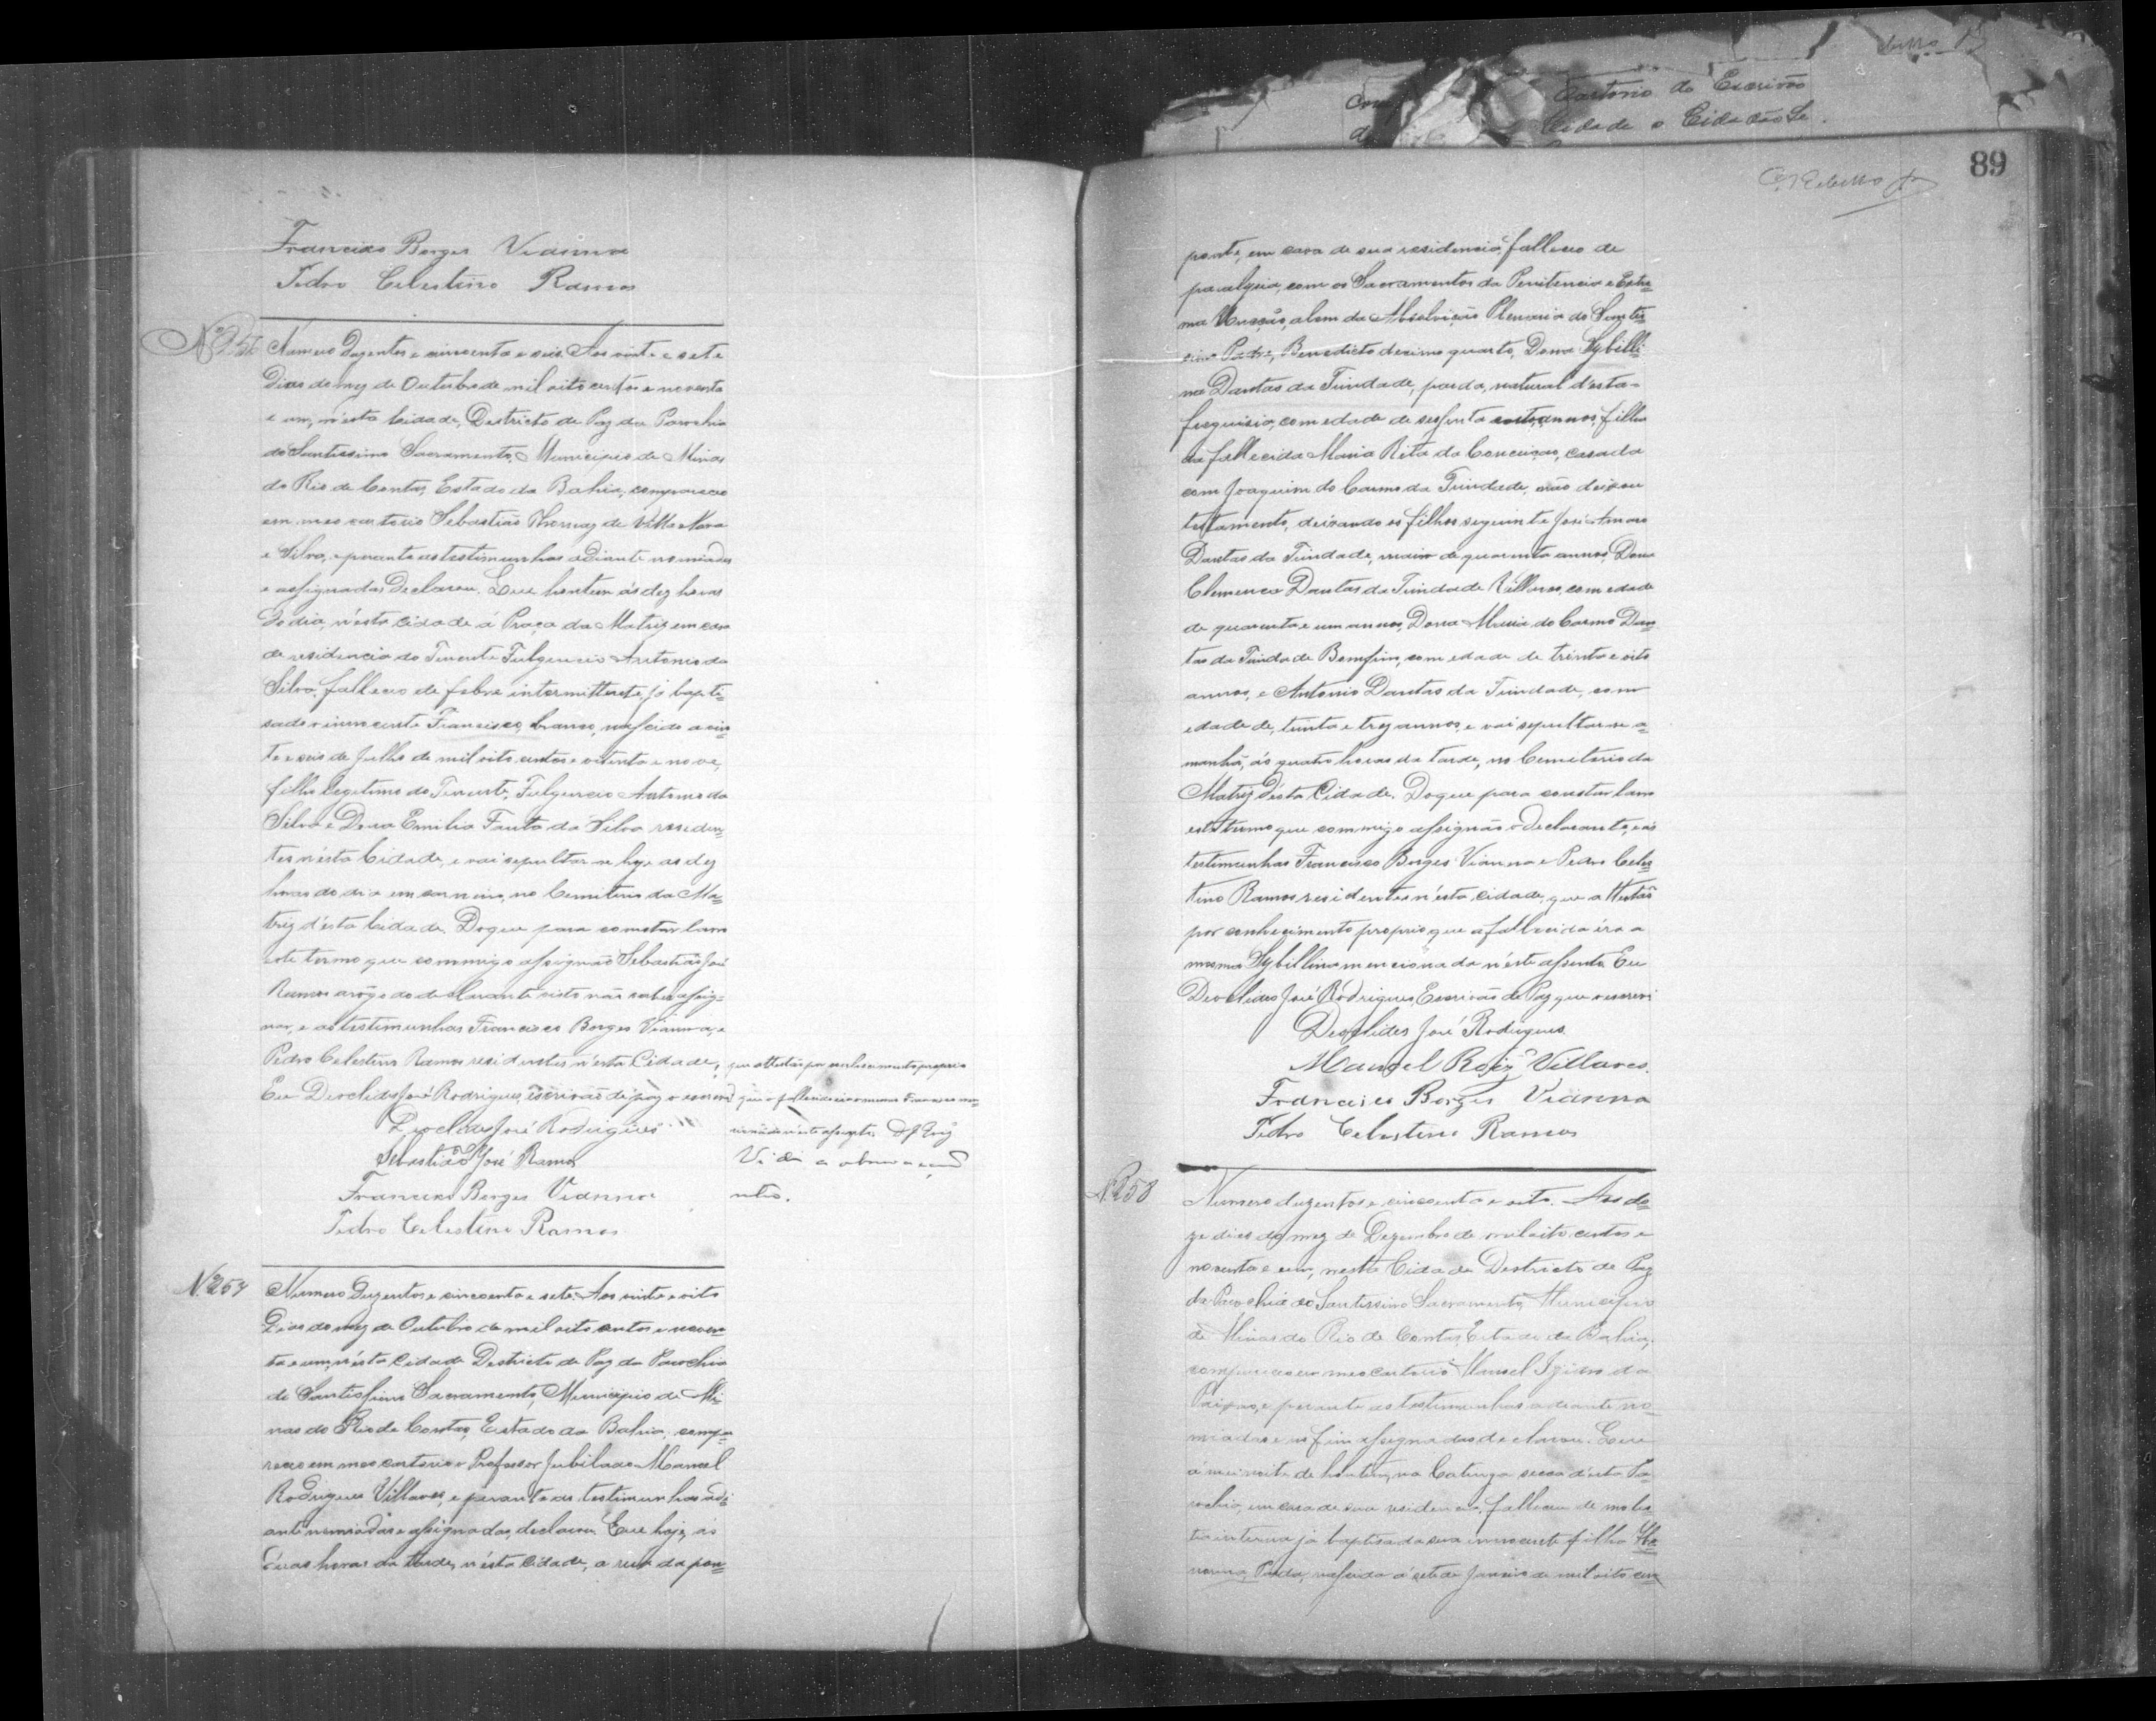 Cartorio do Escrivão
Cidade o Cidadão Se
89
Francisco Borges Vianna
Pedro Celestino Ramos
Nº 256
Numero duzentos e cincoenta e seis. Aos vinte e sete
dias do mez de Outubro de mil oito centos e noventa
e um, n'esta Cidade, Districto de Paz da Parochia
do Santissimo Sacramento, Municipio de Minas
do Rio de Contas, Estado da Bahia, compareceo
em meo cartorio Sebastião Thomaz de Villa Nova
e Silva, e perante as testimunhas adiante nomiadas
e assignadas, declarou. Que hontem ás dez horas
do dia, n'esta Cidade á Praça da Matriz em casa
de residencia do Tenente Fulgencio Antonio da
Silva, falleceo de febre intermittente, já bapti=
sado o innocente Francisco, branco, nascido a vin=
te e seis de Julho de mil oito centos e oitenta e nove,
filho legitimo do Tenente Fulgencio Antonio da
Silva e Dona Emilia Fausta da Silva residen=
tes n'esta Cidade, e vai sepultar-se hoje as dez
horas do dia em carneiro, no Cemiterio da Ma=
triz d'esta Cidade. Do que para constar lavro
este termo que commigo assignão Sebastião José
Ramos a rôgo do declarante visto não saber assig=
nar, e as testimunhas Francisco Borges Vianna, e
Pedro Celestino Ramos residentes n'esta Cidade, que attestão por conhecimento proprio
Eu Deoclides José Rodrigues, escrivão de paz o escrevi que o fallecido era o mesmo Francisco men=
Deoclides José Rodrigues
cionado n'este assento.
Sebastião José Ramos
Francisco Borges Vianna
Pedro Celestino Ramos
N. 257
Numero duzentos e cincoenta e sete. Aos vinte e oito
Dias do mez de Outubro de mil oito centos e noven=
ta e um, n'esta Cidade Districto de Paz da Parochia
do Santissimo Sacramento, Municipio de Mi=
nas do Rio de Contas, Estado da Bahia, compa=
receo em meo cartorio o Professor Jubilado Manoel
Rodrigues Villares, e perante as testimunhas adi=
ante nomiadas e assignadas, declarou. Que hoje, ás
duas horas da tarde, n'esta Cidade, a rua da pon=
ponte, em casa de sua residencia, falleceo de
paralysia, com os Sacramentos da Penitencia e Extre=
ma Uncção, alem da Absolvição Plenaria do Santis=
simo Padre, Benedicto decimo quarto, Dona Sybilli=
na Dantas da Trindade, parda, natural d'esta
freguisia, com edade de sessenta annos, filha
da fallecida Maria Rita da Conceição, casada
com Joaquim do Carmo da Trindade, não deixou
testamento, deixando os filhos seguinte José Amaro
Dantas da Trindade, maior de quarenta annos, Dona
Clemencia Dantas da Trindade Villares, com edade
de quarenta e um annos, Dona Maria do Carmo Dan
tas da Trindade Bomfim, com edade de trinta e oito
annos, e Antonio Dantas da Trindade, com
edade de, trinta e trez annos, e vai sepultar-se a=
manhã, ás quatro horas da tarde, no Cemiterio da
Matriz d'esta Cidade. Do que para constar lavro
este termo que commigo assignão o declarante, e as
testimunhas Francisco Borges Vianna e Pedro Celes=
tino Ramos residentes n'esta cidade, que attestão
por conhecimento proprio que a fallecida éra a
mesma Sybillina mencionada n'este assento. Eu
Deoclides José Rodrigues, Escrivão de Paz que o escrevi
Deoclides José Rodrigues.
Manoel Roiz Villares.
Francisco Borges Vianna
Pedro Celestino Ramos
N. 258
Numero duzentos e cincoenta e oito. Aos do=
ze dias do mez de Dezembro de mil oito centos e
noventa e um, nesta Cidade Districto de Paz
da Parochia do Santissimo Sacramento, Municipio
de Minas do Rio de Contas, Estado da Bahia,
compareceo em meo Cartorio Manoel Izidro da
Paixão, e perante as testimunhas adiante no=
miadas e no fim assignadas, declarou. Que
á meia noite de hontem, na Catinga secca d'esta Pa=
rochia, em casa de sua residencia, falleceu de moles=
tia interna já baptisada sua innocente filha Ho=
norina, Parda, nascida a sete de Janeiro de mil oito cen=